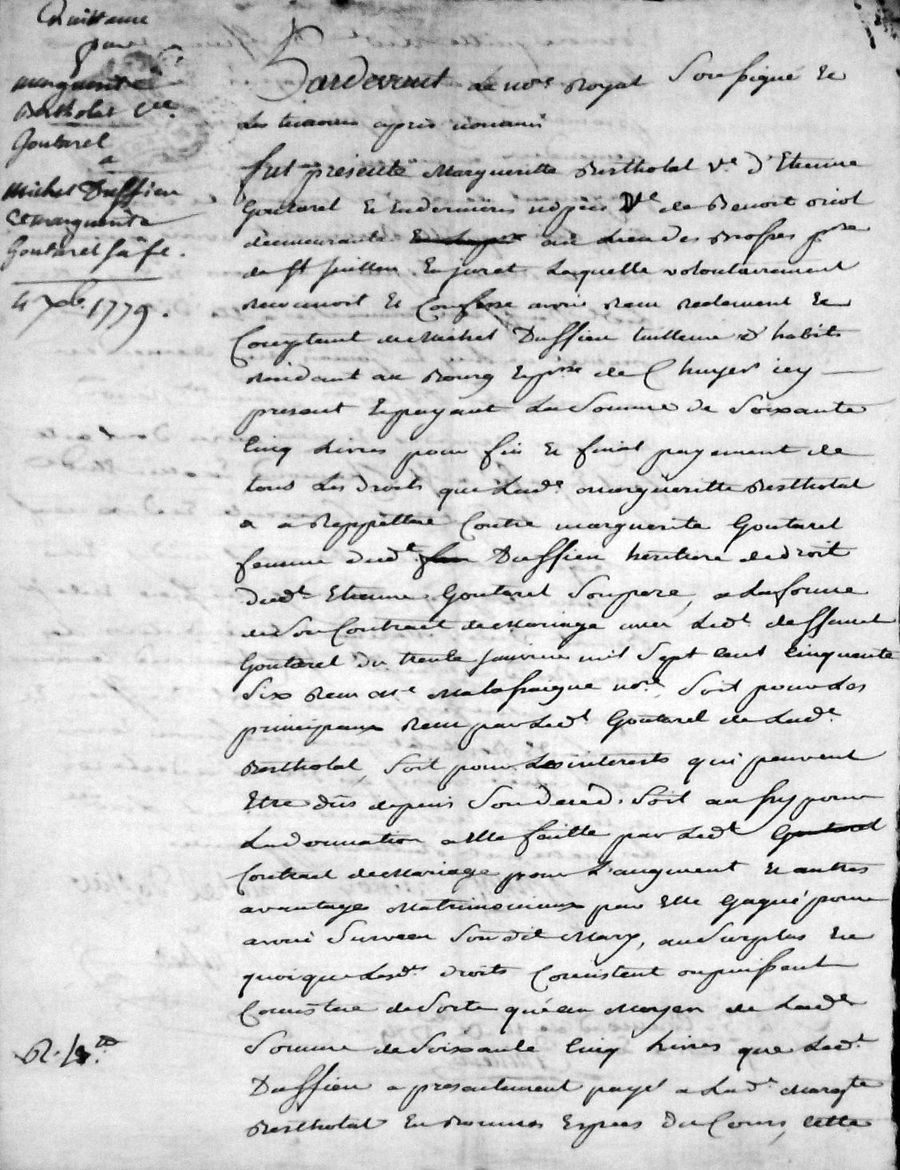 Quittance
pour
marguerite
Bertholat v.e
Goutarel
a
michel Duffieu
et marguerite
Goutarel sa fe.
4 Xbr. 1779.
Pardevant Le no.re Royal Soussigné Et
Les temoins après només
fut présente Margueritte Bertholat v.e d'Etienne
Goutarel Et En dernières nopces V.e de Benoit
demeurante au Lieu des Brosses p.sse
de St jullien En jaret Laquelle volontairement
Reconnoit Et Confesse avoir Recu Reelement Et
Comptant de Michel Duffieu tailleur d'habits
Residant au Bourg Et p.sse de Chuyer icy
present Et payant La Somme de Soixante
Cinq Livres pour fin Et final payement de
tous Les droits que Lad.e margueritte Bertholat
a a Reppetter Contre marguerite Goutarel
femme dud.t Duffieu heritiere de droit
dud.t Etienne Goutarel Son pere, a La forme
de Son Contract de Mariage avec Led.t deffunt
Goutarel du trente Janvier mil Sept Cent Cinquante
Six Recu M.e Malassaigne no.re Soit pour Les
principaux Recu par Led.t Goutarel de Lad.e
Bertholat, Soit pour Les interests qui peuvent
Etre dûs depuis Son deced. Soit aussy pour
La donnation a Elle faitte par Led.t Goutarel
Contract de Mariage pour L'augment Et autres
avantages Matrimoniaux par Elle Gagné pour
avoir Survecu Sondit Mary, au Surplus En
quoi que Lesd.ts droits Consistent ou puissent
Consister de Sorte qu'au Moyen de Lad.e
Somme de Soixante Cinq Livres que Led.t
Duffieu a presentement payé a Lad.e Marg.te
Bertholat En Bonnes Especes du Cours, Cette